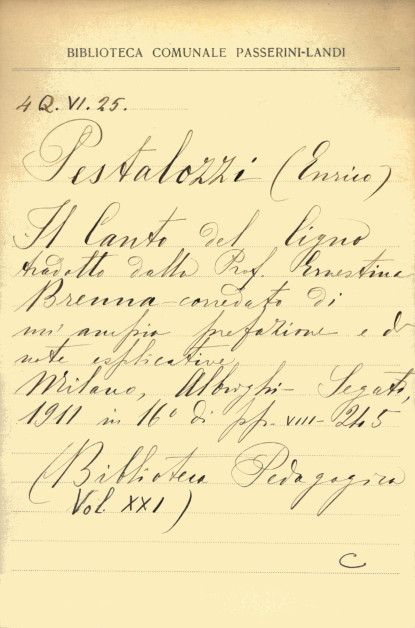 BIBLIOTECA COMUNALE PASSERINI-LANDI
4 Q. VI. 25.
Pestalozzi (Enrico)
Il Canto del Cigno
tradotto dalla Prof. Ernestina
Brenna corredato di
un' ampia prefazione e di
note esplicative
Milano, Albrighi- Segati,
1911 in 16º di pp. VIII- 245
(Biblioteca Pedagogica
Vol. XXI)
C